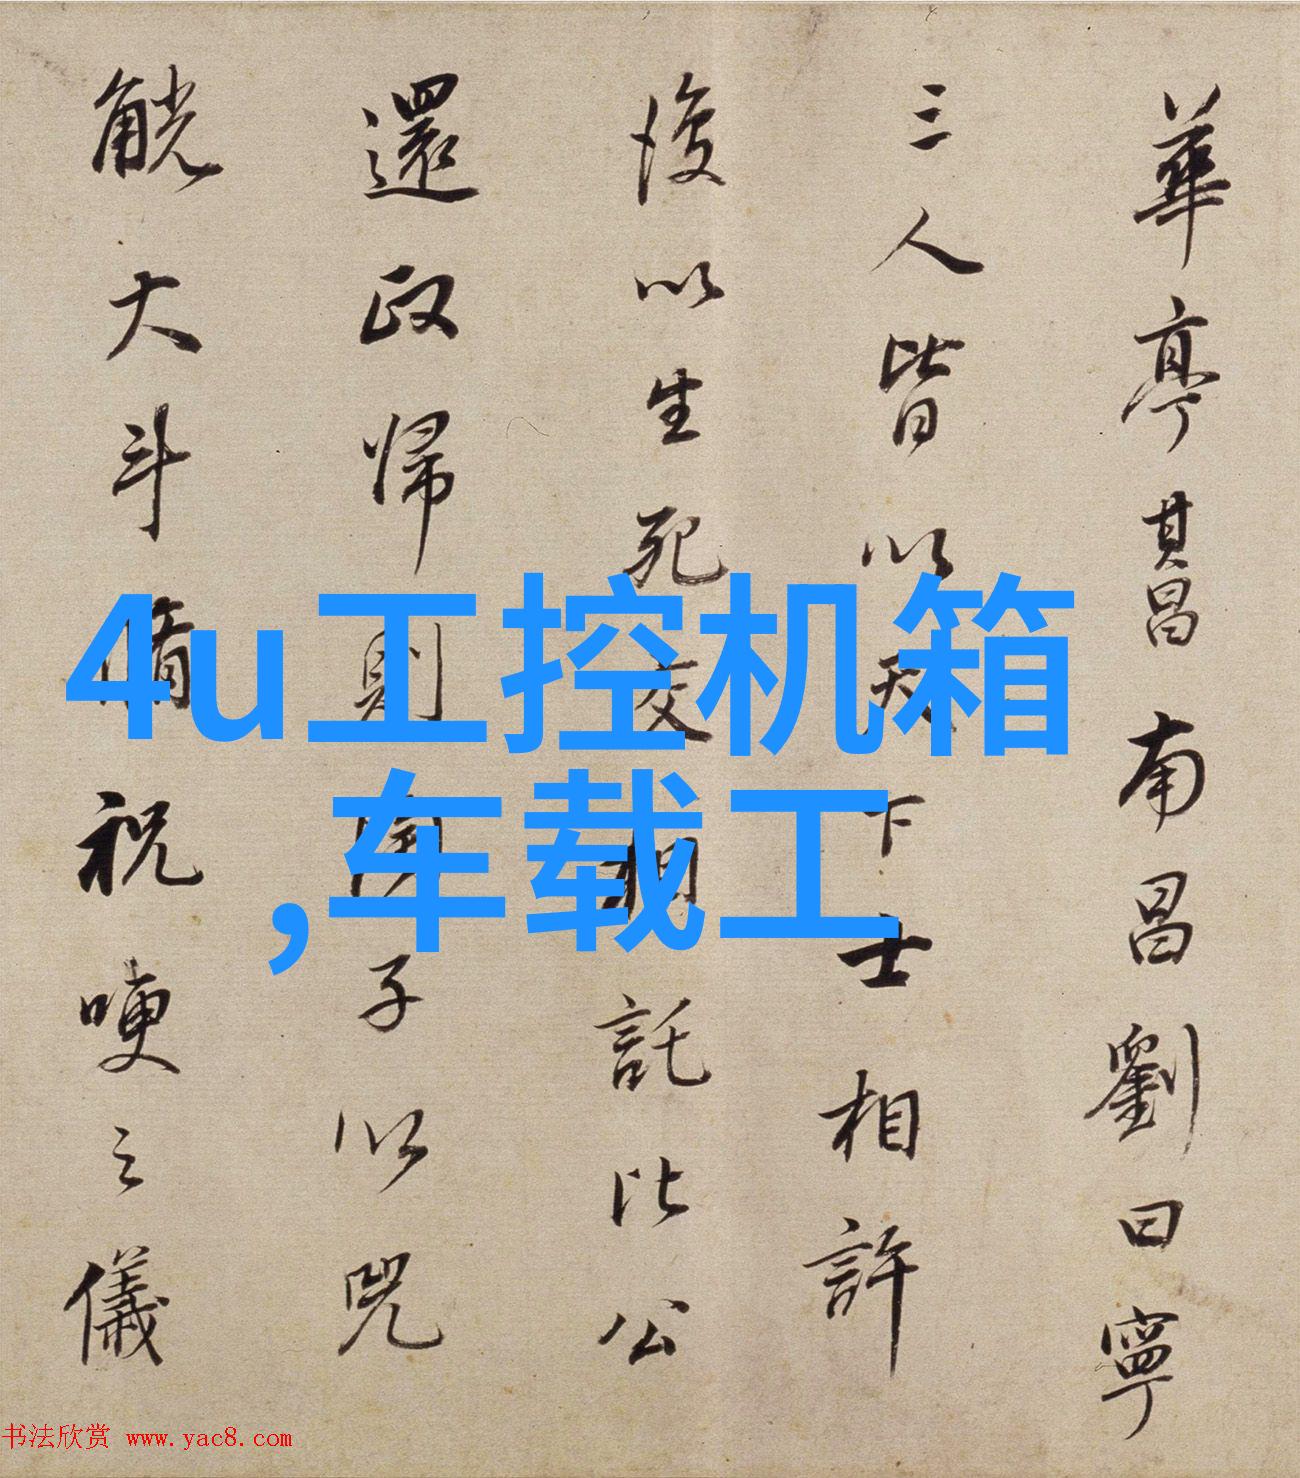 華亭其昌南昌劉曰寧
三人皆以天下士相許
後以生死交相託比公
還政帰則子以兕
觥大斗脩祝哽之儀
4u工控机箱
,车载工
书法欣赏 www.yac8.com